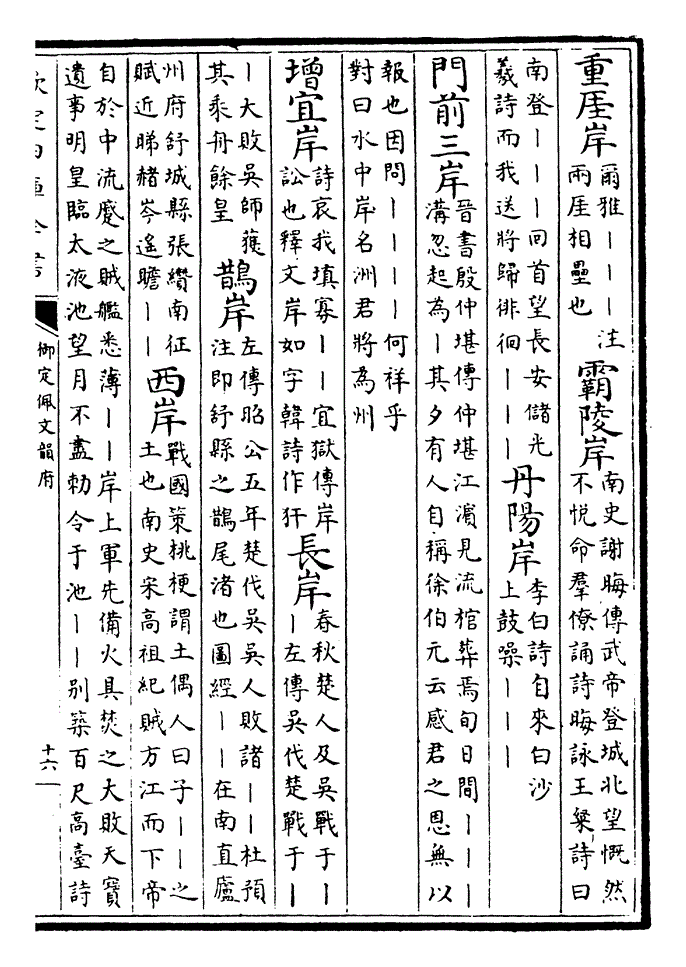 重厓岸
爾雅｜｜｜注
兩厓相壘也
霸陵岸
南史謝晦傳武帝登城北望慨然
不悅命羣僚誦詩晦詠王粲詩曰
南登｜｜｜回首望長安儲光
羲詩而我送將歸徘徊｜｜｜
丹陽岸
李白詩自來白沙
上鼓噪｜｜｜
門前三岸
晉書殷仲堪傳仲堪江濵見流棺葬焉旬日間｜｜｜
溝忽起為｜其夕有人自稱徐伯元云感君之恩無以
報也因問｜｜｜｜何祥乎
對曰水中岸名洲君將為州
增宜岸
詩哀我填寡｜｜宜獄傳岸
訟也釋文岸如字韓詩作犴
長岸
春秋楚人及吳戰于｜
｜左傳吳伐楚戰于｜
｜大敗吳師獲
其乘舟餘皇
鵲岸
左傳昭公五年楚伐吳吳人敗諸｜｜杜預
注即舒縣之鵲尾渚也圖經｜｜在南直廬
州府舒城縣張纘南征
賦近睇赭岑遙瞻｜｜
西岸
戰國策桃梗謂土偶人曰子｜｜之
土也南史宋高祖紀賊方江而下帝
自於中流蹙之賊艦悉薄｜｜岸上軍先備火具焚之大敗天寶
遺事明皇臨太液池望月不盡勅令于池｜｜別築百尺高臺詩
欽定四庫全書
御定佩文韻府
十六